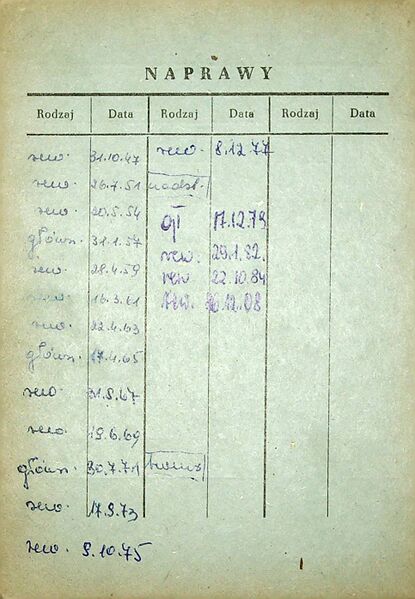 NAPRAWY
Rodzaj Data Rodzaj Data Rodzaj Data
rew. 31.10.47 rew. 8.12.77
rew. 26.7.51
rew. 20.5.54
główn. 31.1.57 gł 17.12.79
rew. 28.4.59 rew. 29.1.82.
16.3.61 rew 22.10.84
rew. 22.4.63 rew.
główn. 17.4.65
rew. 31.8.67
rew. 19.6.69
główn. 30.7.71
rew. 17.9.73
rew. 9.10.75